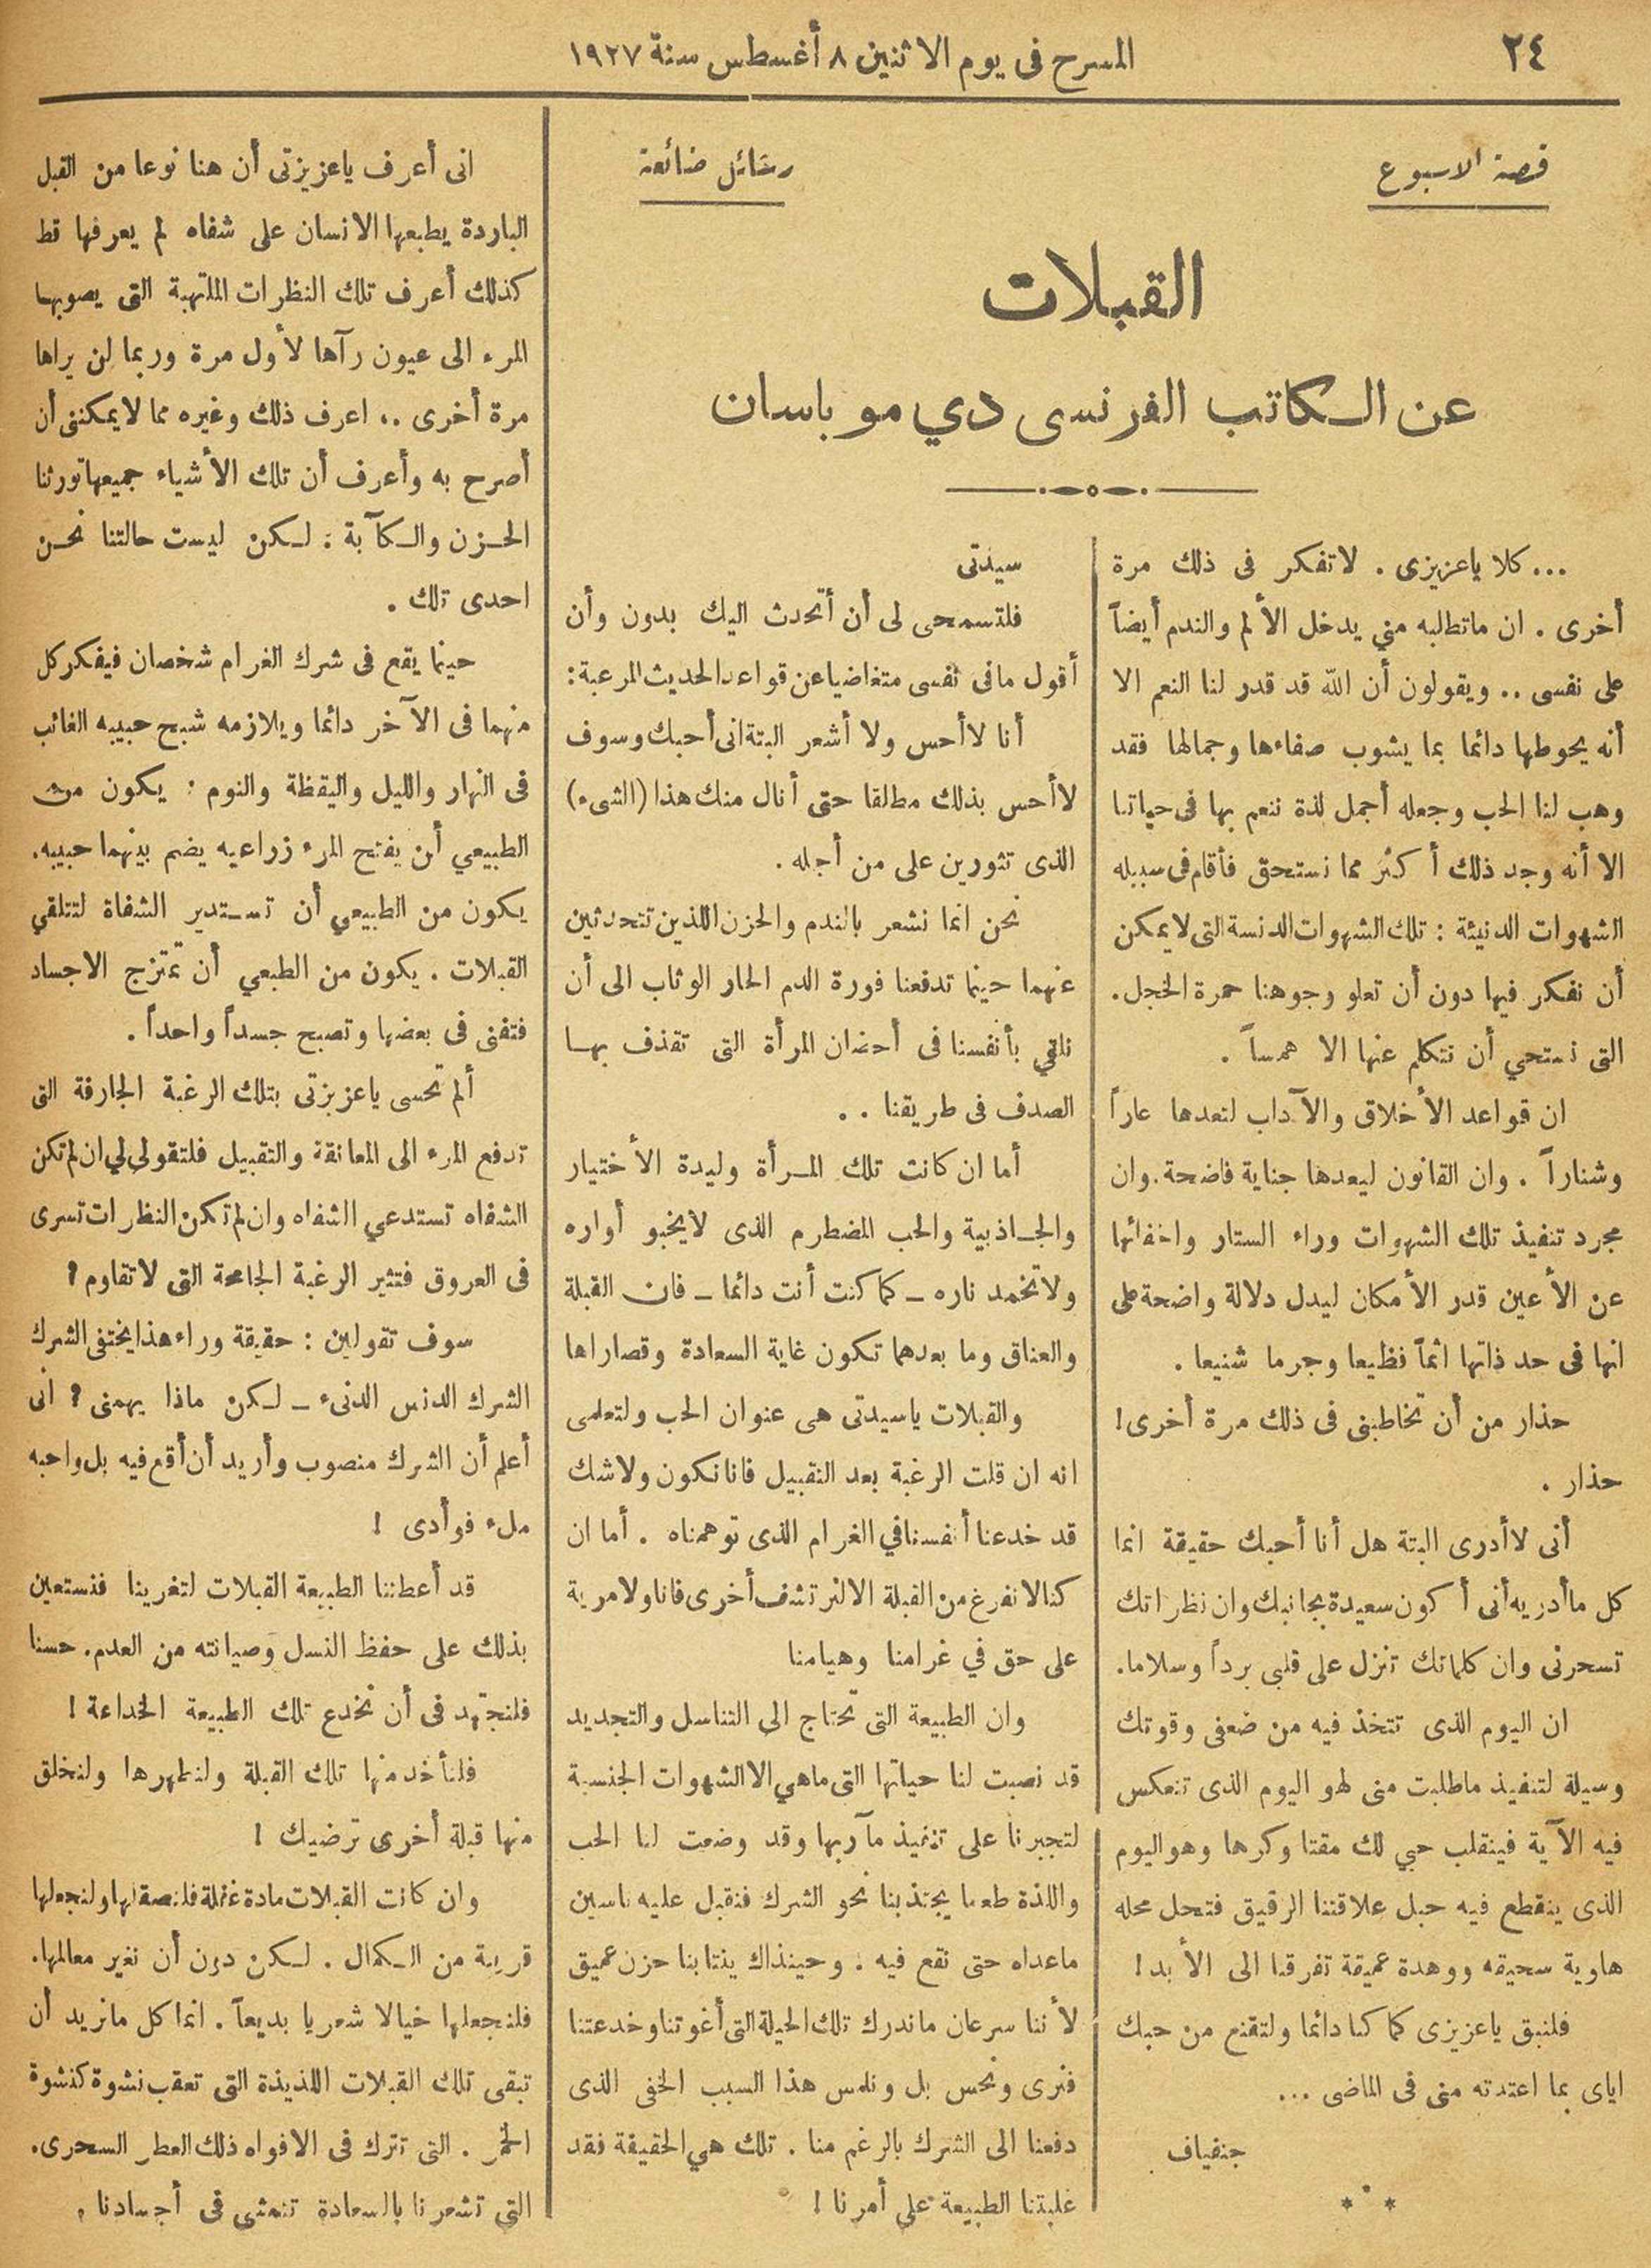 ٢٤
المسرح فى يوم الاثنين ٨ أغسطس سنة ١٩٢٧
قصة الاسبوع
رسائل ضائعة
القبلات
عن الكاتب الفرنسى دي موباسان
... كلا ياعزيزى . لاتفكر فى ذلك مرة
أخرى . ان ماتطلبه مني يدخل الألم والندم أيضاً
على نفسى .. ويقولون أن الله قد قدر لنا النعم الا
أنه يحوطها دائما بما يشوب صفاءها وجمالها فقد
وهب لنا الحب وجعله أجمل لذة ننعم بها فى حياتنا
الا أنه وجد ذلك أكثر مما نستحق فأقام فى سبيله
الشهوات الدنيئة : تلك الشهوات الدنسة التى لايمكن
أن نفكر فيها دون أن تعلو وجوهنا حمرة الخجل.
التى نستحي أن نتكلم عنها الا همساً .
ان قواعد الأخلاق والآداب لتعدها عاراً
وشناراً . وان القانون ليعدها جناية فاضحة. وان
مجرد تنفيذ تلك الشهوات وراء الستار واخفائها
عن الأعين قدر الأمكان ليدل دلالة واضحة على
انها فى حد ذاتها اثماً فظيعا وجرما شنيعا .
حذار من أن تخاطبنى فى ذلك مرة أخرى!
حذار .
أنى لاأدرى البتة هل أنا أحبك حقيقة انما
كل ماأدريه أنى أكون سعيدة بجانبك وان نظراتك
تسحرنى وان كلماتك تنزل على قلبى برداً وسلاما.
ان اليوم الذى تتخذ فيه من ضعفى وقوتك
وسيلة لتنفيذ ماطلبت منى لهو اليوم الذى تنعكس
فيه الآية فينقلب حبي لك مقتا وكرها وهو اليوم
الذى ينقطع فيه حبل علاقتنا الرقيق فتحل محله
هاوية سحيقه ووهدة عميقة تفرقنا الى الأبد!
فلنبق ياعزيزى كما كنا دائما ولتقنع من حبك
اياى بما اعتدته منى فى الماضى ...
جنفياف
* * *
سيدتى
فلتسمحى لى أن أتحدث اليك بدون وأن
أقول مافى نفسى متغاضيا عن قواعد الحديث المرعبة:
أنا لاأحس ولا أشعر البتة انى أحبك وسوف
لاأحس بذلك مطلقا حتى أنال منك هذا (الشىء)
الذى تثورين على من أجله .
نحن انما نشعر بالندم والحزن اللذين تتحدثين
عنهما حينما تدفعنا فورة الدم الحار الوثاب الى أن
نلقي بأنفسنا فى أحضان المرأة التى تقذف بها
الصدف فى طريقنا . .
أما ان كانت تلك المرأة وليدة الأختيار
والجاذبية والحب المضطرم الذى لايخبو أواره
ولاتخمد ناره ــ كما كنت أنت دائما ــ فان القبلة
والعناق وما بعدهما تكون غاية السعادة وقصاراها
والقبلات ياسيدتى هى عنوان الحب ولتعلمى
انه ان قلت الرغبة بعد التقبيل فانا نكون ولاشك
قد خدعنا أنفسنا في الغرام الذى توهمناه . أما ان
كنا لانفرغ من القبلة الا لنرتشف أخرى فانا ولامرية
على حق في غرامنا وهيامنا
وان الطبيعة التى تحتاج الى التناسل والتجديد
قد نصبت لنا حبالتها التى ماهي الا الشهوات الجنسية
لتجبرنا على تنفيذ مآربها وقد وضعت لنا الحب
واللذة طعما يجتذبنا نحو الشرك فنقبل عليه ناسين
ماعداه حتى نقع فيه . وحينذاك ينتابنا حزن عميق
لأننا سرعان ماندرك تلك الحيلة التى أغوتنا وخدعتنا
فنرى ونحس بل ونلمس هذا السبب الخفى الذى
دفعنا الى الشرك بالرغم منا . تلك هي الحقيقة فقد
غلبتنا الطبيعة على أمرنا !
انى أعرف ياعزيزتى أن هنا نوعا من القبل
الباردة يطبعها الانسان على شفاه لم يعرفها قط
كذلك أعرف تلك النظرات الملتهبة التى يصوبها
المرء الى عيون رآها لأول مرة وربما لن يراها
مرة أخرى .. اعرف ذلك وغيره مما لايمكننى أن
أصرح به وأعرف أن تلك الأشياء جميعها تورثنا
الحزن والكآبة : لكن ليست حالتنا نحن
احدى تلك .
حينما يقع فى شرك الغرام شخصان فيفكر كل
منهما فى الآخر دائما ويلازمه شبح حبيبه الغائب
فى النهار والليل واليقظة والنوم : يكون من
الطبيعي أن يفتح المرء زراعيه يضم بينهما حبيبه.
يكون من الطبيعي أن تستدير الشفاة لتتلقي
القبلات . يكون من الطبعي أن تمتزج الاجساد
فتفنى فى بعضها وتصبح جسداً واحداً .
ألم تحسى ياعزيزتى بتلك الرغبة الجارفة التى
تدفع المرء الى المعانقة والتقبيل فلتقولى لي ان لم تكن
الشفاه تستدعي الشفاه وان لم تكن النظرات تسرى
فى العروق فتثير الرغبة الجامحة التى لاتقاوم ؟
سوف تقولين : حقيقة وراء هذا يختفى الشرك
الشرك الدنس الدنىء ــ لكن ماذا يهمنى ؟ انى
أعلم أن الشرك منصوب وأريد أن أقع فيه بل واحبه
ملء فوأدى !
قد أعطتنا الطبيعة القبلات لتغرينا فنستعين
بذلك على حفظ النسل وصيانته من العدم. حسنا
فلنجتهد فى أن نخدع تلك الطبيعة الخداعة !
فلنأخذ منها تلك القبلة ولنطهرها ولنخلق
منها قبلة أخرى ترضيك !
وان كانت القبلات مادة غفلة فلنصقلها ولنجعلها
قريبة من الكمال . لكن دون أن نغير معالمها.
فلنجعلها خيالا شعريا بديعاً . انما كل مانريد أن
تبقى تلك القبلات اللذيذة التى تعقب نشوة كنشوة
الخمر . التى تترك فى الافواه ذلك العطر السحرى.
التى تشعرنا بالسعادة تتمشى فى أجسادنا .